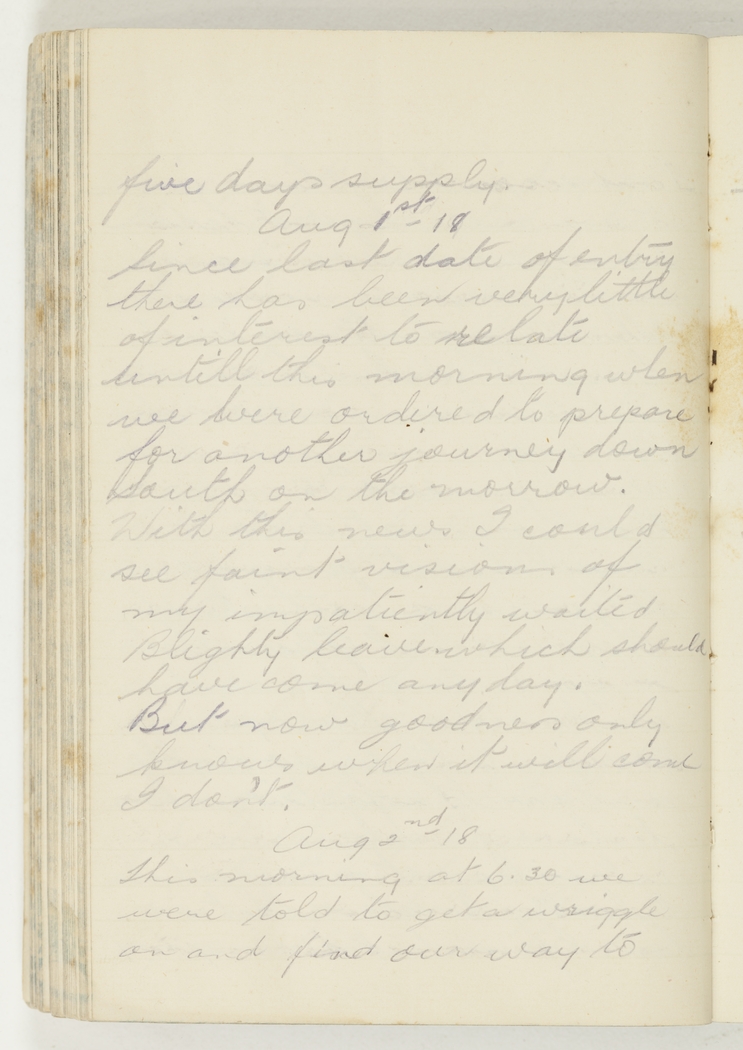 five days supply.
Aug 1st - 18
Since last date of entry
there has been very little
of interest to relate
untill this morning when
we were ordered to prepare
for another journey down
South on the morrow.
With this news I could
see faint visions of
my impatiently waited
Blighty leave which should
have come any day.
But now goodness only
knows when it will come
I don't.
Aug 2nd - 18
This morning at 6.30 we
were told to get a wriggle
on and find our way to